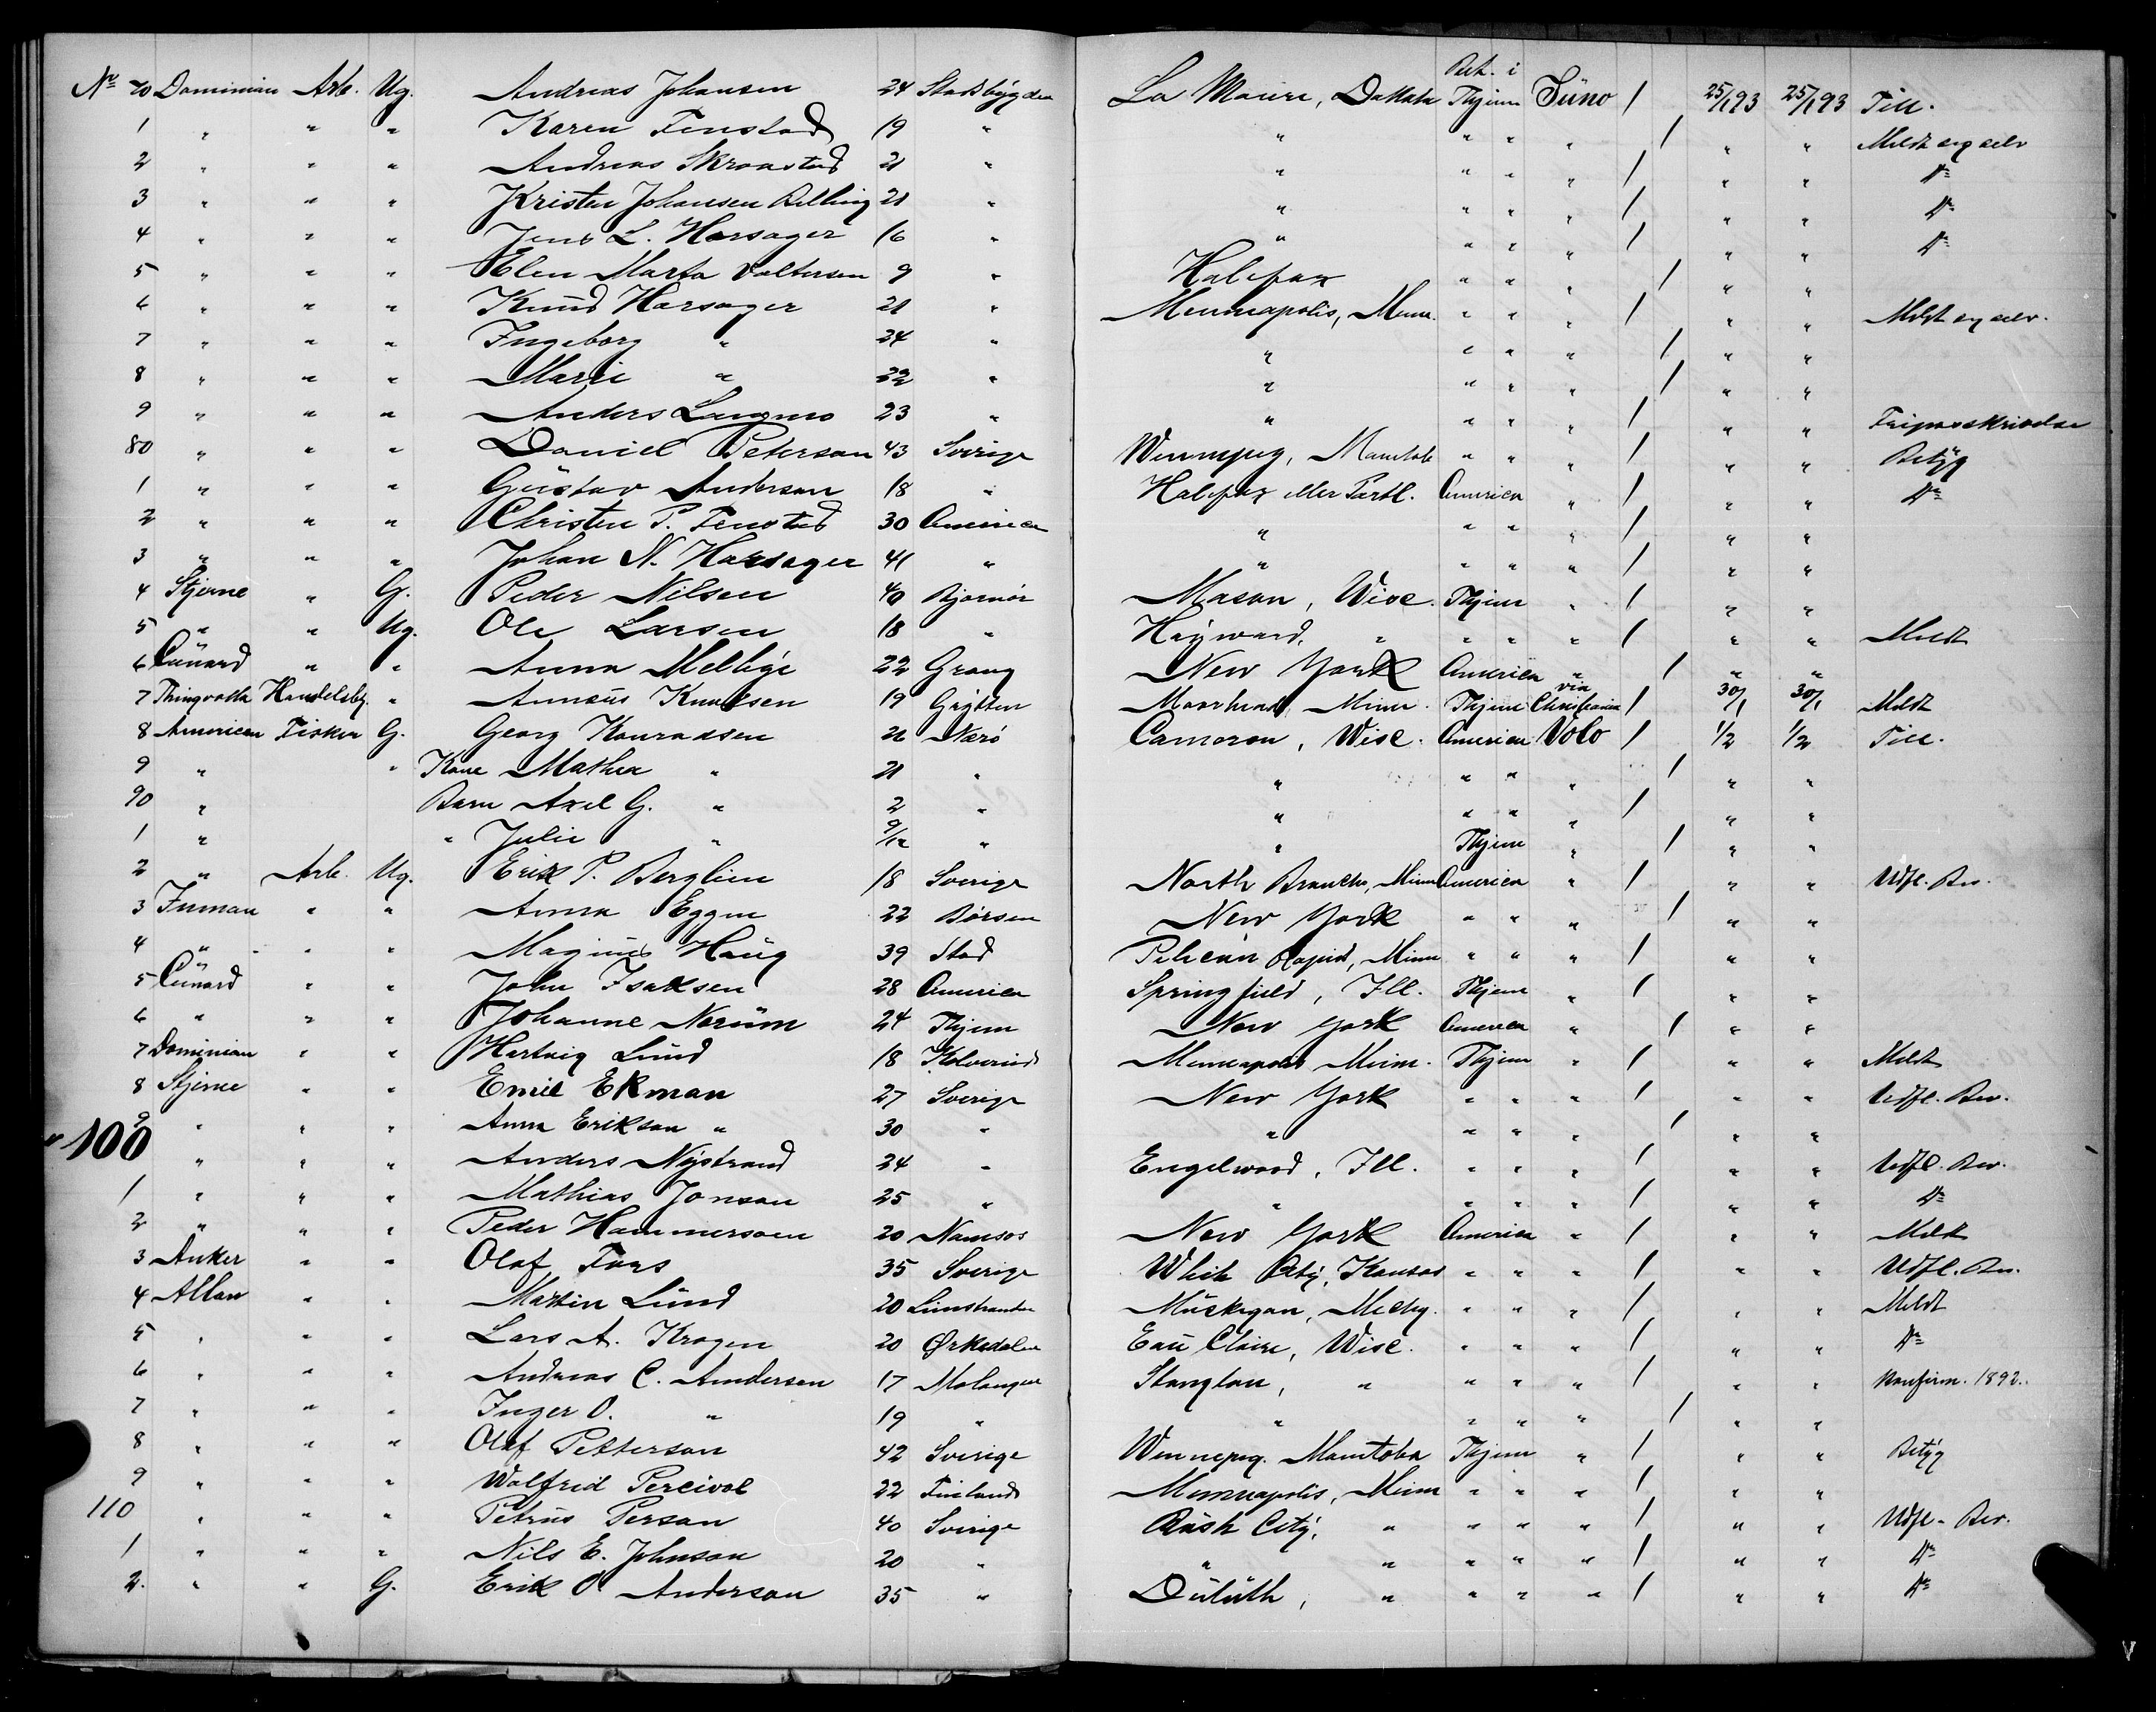 Bet. i
No 70 Dominian Arb. Ug. Andreas Johansen 24 Stadsbygden La Moure, Dakkota Thjem Juno / 25/1 93 25/1 93 Till.
1 " " " Karen Fenstad 19 " " " " " / " " Meldt sig selv
2 " " " Andreas Skronstad 21 " " " " " / " " Do
3 " " " Kristen Johansen Rilling 21 " " " " " / " " Do
4 " " " Jens L. Harsager 16 " " " " " / " " Do
5 " " " Elen Marta Valtersen 9 " Halifax " " " / " "
6 " " " Knud Harsager 21 " Minneapolis, Minn. " " " / " " Meldt sig selv.
7 " " " Ingeborg " 24 " " " " " / " "
8 " " " Marie " 22 " " " " " / " "
9 " " " Anders Langmo 23 " " " " " / " " Fripasskrivelse
80 " " " Daniel Peterson 43 Sverige Winnipeg, Manitob " " " / " " Betÿg
1 " " " Gustav Anderson 18 " Halifax eller Portl. America " / " " Do
2 " " " Christen P. Fenstad 30 America " " " " / " "
3 " " " Johan N. Harsager 41 " " " " " / " "
4 Stjerne " G. Peder Nilsen 40 Bjørnør Mason, Wisc. Thjem " / " "
5 " " Ug. Ole Larsen 18 " Hayward, " " " " / " " Meldt
6 Cunard " " Anna Melbÿe 22 Grong New York America " / " "
7 Thingvalla Handelsbg. " Annæus Knudsen 19 Grÿtten Moorhead, Minn. Thjem via Christiania / 30/1 30/1 Meldt
8 American Fisker G. Georg Konradsen 26 Nærö Cameron, Wisc. America Volo / 1/2 1/2 Till.
9 " " Kone Mathea " 21 " " " " " / " "
90 " Barn Axel G. " 2 " " " " " / " "
1 " " Julie " 9/12 " " Thjem " / " "
2 " Arb. Ug. Erik P. Berglien 18 Sverige North Branch, Minn America " / " " Udfl. Bev.
3 Inman " " Anna Eggen 22 Børsen New York " " " / " "
4 " " " Magnus Haug 39 Stod Pelican Rapid, Minn " " " / " "
5 Cunard " " John Isaksen 28 America Springfield, Ill. Thjem " / " "
6 " " " Johanne Norum 24 Thjem New York America " / " "
7 Dominian " " Hartvig Lund 18 Kolvereid Minneapolis Minn. Thjem " / " " Meldt
8 Stjerne " " Emil Ekman 27 Sverige New York " " " / " " Udfl. Bev.
9 " " " Anna Erikson " 30 " " " " " / " "
" 100 " " " Anders Nÿstrand 24 " Engelwood, Ill. " " " / " " Udfl. Bev.
1 " " " Mathias Jonson 25 " " " " " / " " Do
2 " " " Peder Hammersoen 20 Namsos New York America " / " " Meldt
3 Anker " " Olaf Fors 35 Sverige White City, Kansas " " " / " " Udfl. Bev.
4 Allan " " Martin Lund 20 Leinstranden Muskegan, Michg. " " " / " " Meldt
5 " " " Lars A. Krogen 20 Ørkedalen Eau Claire, Wisc. " " " / " " Do
6 " " " Andreas C. Andersen 17 Malangen Stangton, " " " " / " " Konfirm. 1892.
7 " " " Inger O. " 19 " " " " " / " "
8 " " " Olof Petterson 42 Sverige Winnepeg. Manitoba Thjem " / " " Betÿg
9 " " " Wolfrid Percival 22 Finland Minneapolis, Minn " " " / " "
110 " " " Petrus Person 40 Sverige Rush City, " " " " / " " Udfl. Bev.
1 " " " Nils E. Johnson 20 " " " " " " / " " Do
2. " " G. Erik O Anderson 35 " Duluth, " " " " / " " Do
V